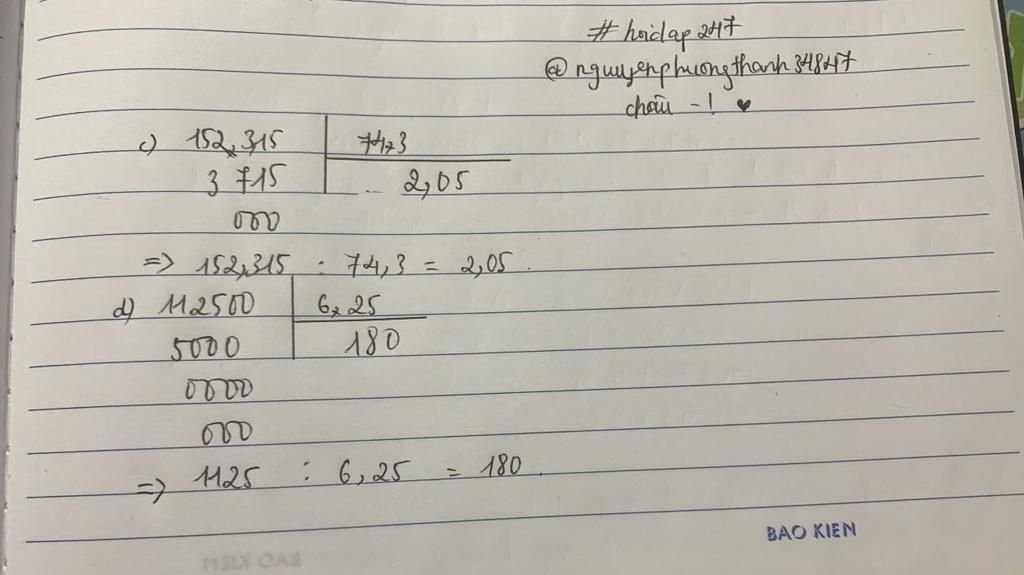 # hoidap247
@nguyenphuongthanh34847
c) 152,315 74,3
3 715 2,05
000
=> 152,315 : 74,3 = 2,05.
d) 112500 6,25
5000 180
0000
000
=> 1125 : 6,25 = 180.
BAO KIEN